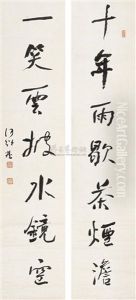 十年雨歇茶煙澹
一笑雲披水鏡空